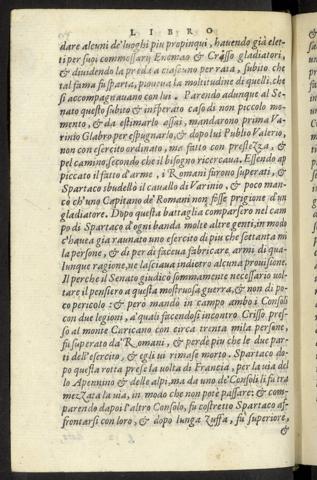 LIBRO
dare alcuni de' luoghi piu propinqui, hauendo già elet-
ti per suoi commessarij Enomao & Crasso gladiatori,
& diuidendo la preda a ciascuno per rata, subito che
tal fama fu sparta, pioueua la moltitudine di quelli, che
si accompagnauano con lui. Parendo adunque al Se-
nato questo subito & insperato caso di non piccolo mo-
mento, & da estimarlo assai, mandarono prima Va-
rinio Glabro per espugnarlo, & dopo lui Publio Valerio,
non con esercito ordinato, ma fatto con prestezza, &
pel camino, secondo che il bisogno ricercaua. Essendo ap
piccato il fatto d'arme, i Romani furono superati, &
Spartaco ibudellò il cauallo di Varinio, & poco man-
cò ch'uno Capitano de' Romani non fosse prigione d'un
gladiatore. Dopo questa battaglia comparsero nel cam
po di Spartaco d'ogni banda molte altre genti, in modo
c'hauea gia raunato uno esercito di piu che settanta mi
la persone, & di per di faceua fabricare armi di qua-
lunque ragione, ne lasciaua indietro alcuna prouisione.
Il perche il Senato giudicò sommamente necessario uol-
tare il pensiero a questa mostruosa guerra, & non di po-
co pericolo: & però mandò in campo amboi Consoli
con due legioni, a' quali facendosi incontro Crisso pres-
so al monte Caricano con circa trenta mila persone,
fu superato da' Romani, & perdè piu che le due par-
ti dell'esercito, & egli ui rimase morto. Spartaco do-
po questa rotta prese la uolta di Francia, per la uia del
lo Apennino & delle alpi, ma da uno de' Consoli li fu tra
mezzata la uia, in modo che non potè passare: & com-
parendo dapoi l'altro Consolo, fu costretto Spartaco af-
frontarsi con loro, & dopo lunga zuffa, fu superiore,
&